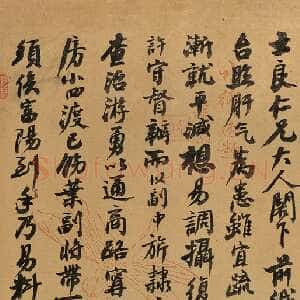 士良仁兄大人閣下前
台照肝气為患雖宜疏
漸就平減想易調攝復
許守督辦而以副中旅隸
查治游勇以通商路寗
房小四渡已飭葉副將帶
須俟富陽到手乃易料